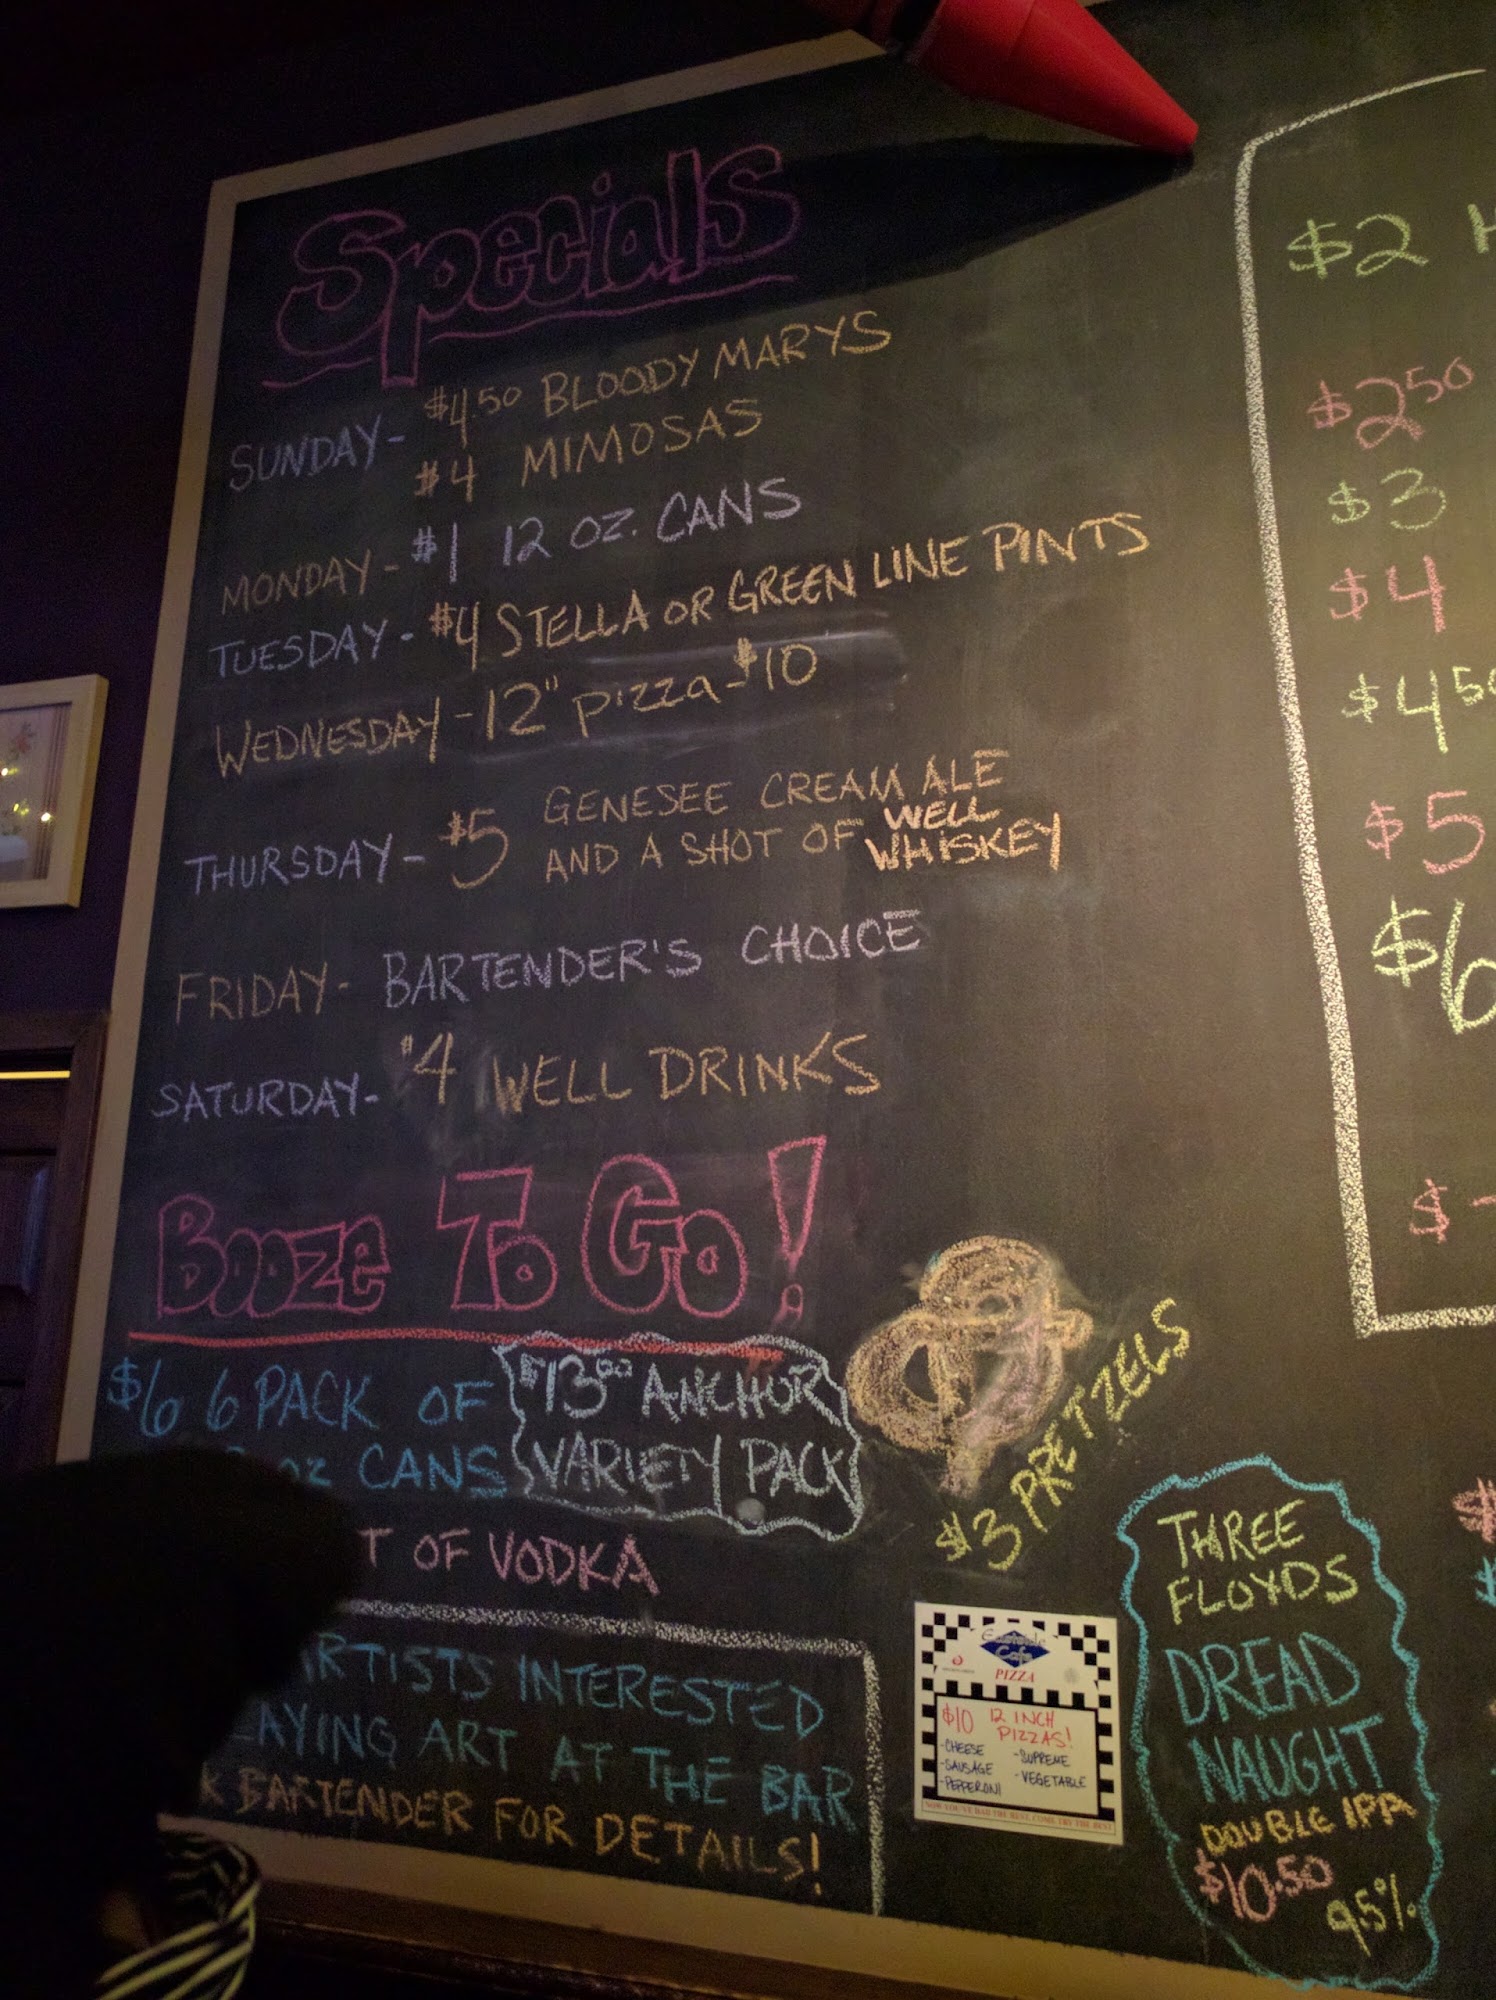 Specials
SUNDAY- $4.50 BLOODY MARYS
$4 MIMOSAS
MONDAY- $1 12 OZ. CANS
TUESDAY- $4 STELLA OR GREEN LINE PINTS
WEDNESDAY-12" pizza-$10
THURSDAY- $5 GENESEE CREAM ALE
AND A SHOT OF WELL
WHISKEY
FRIDAY- BARTENDER'S CHOICE
SATURDAY- $4 WELL DRINKS
Booze To Go!
$6 6 PACK OF
oz CANS
$13.00 ANCHOR
VARIETY PACK
T OF VODKA
$3 PRETZELS
ARTISTS INTERESTED
AYING ART AT THE BAR
K BARTENDER FOR DETAILS!
Cafe
PIZZA
$10 12 INCH
PIZZAS!
-CHEESE
-SAUSAGE
-PEPPERONI
-SUPREME
-VEGETABLE
NOW YOU'VE HAD THE REST, COME TRY THE BEST
THREE
FLOYDS
DREAD
NAUGHT
DOUBLE IPA
$10.50
9.5%
$2 H
$2 50
$3
$4
$4 50
$5
$6
$